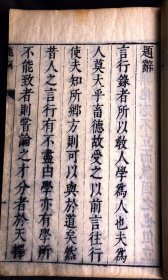 題辭
言行錄者所以敎人學為人也夫為
人莫大乎畜德故受之以前言往行
使夫知所鄉方則可以與於道矣然
昔人之言行有不盡由學亦有學所
不能致者則嘗論之才分者於天擇